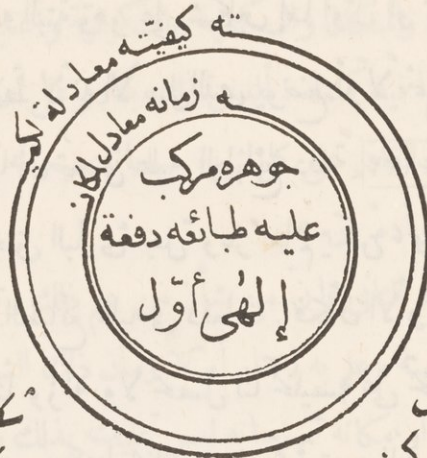 ته كيفيّته معادلة لكيـ
ـه زمانه معادل لمكانـ
جوهره مركب
عليه طبائعه دفعة
إلهٰي أوّل